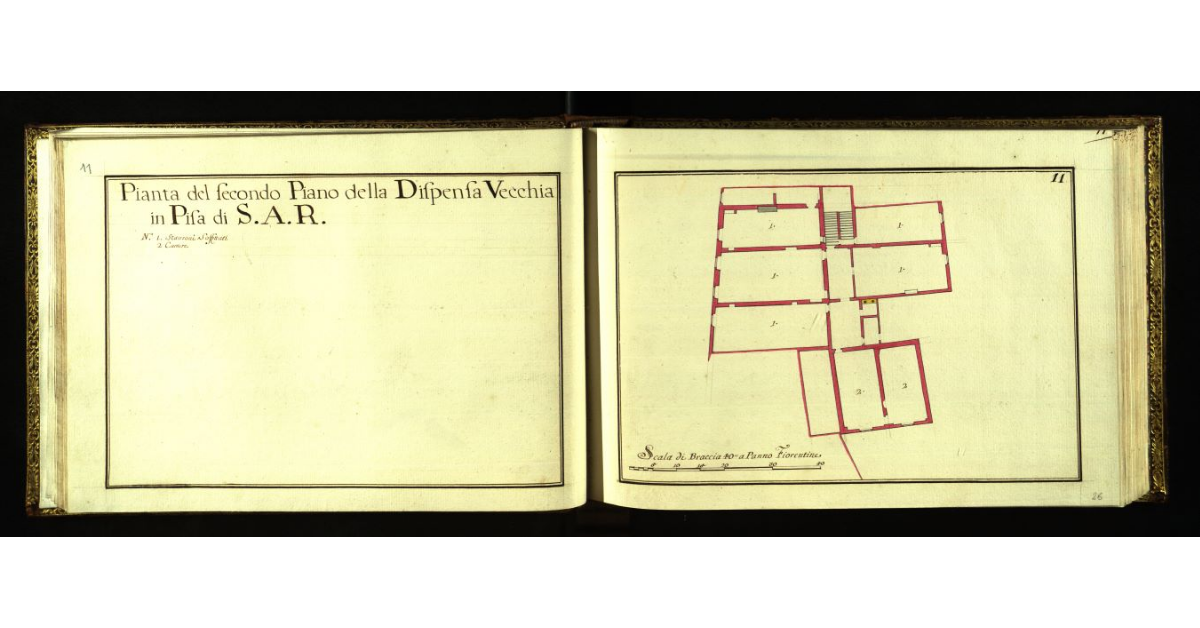 11
Pianta del ſecondo Piano della Diſpenſa Vecchia
in Piſa di S. A. R.
N.º 1. Stanzoni Soffittati
2. Camere
11
1·
1·
1·
1·
1·
2·
2
Scala di Braccia 40 a Panno Fiorentine
5 10 15 20 30 40
26